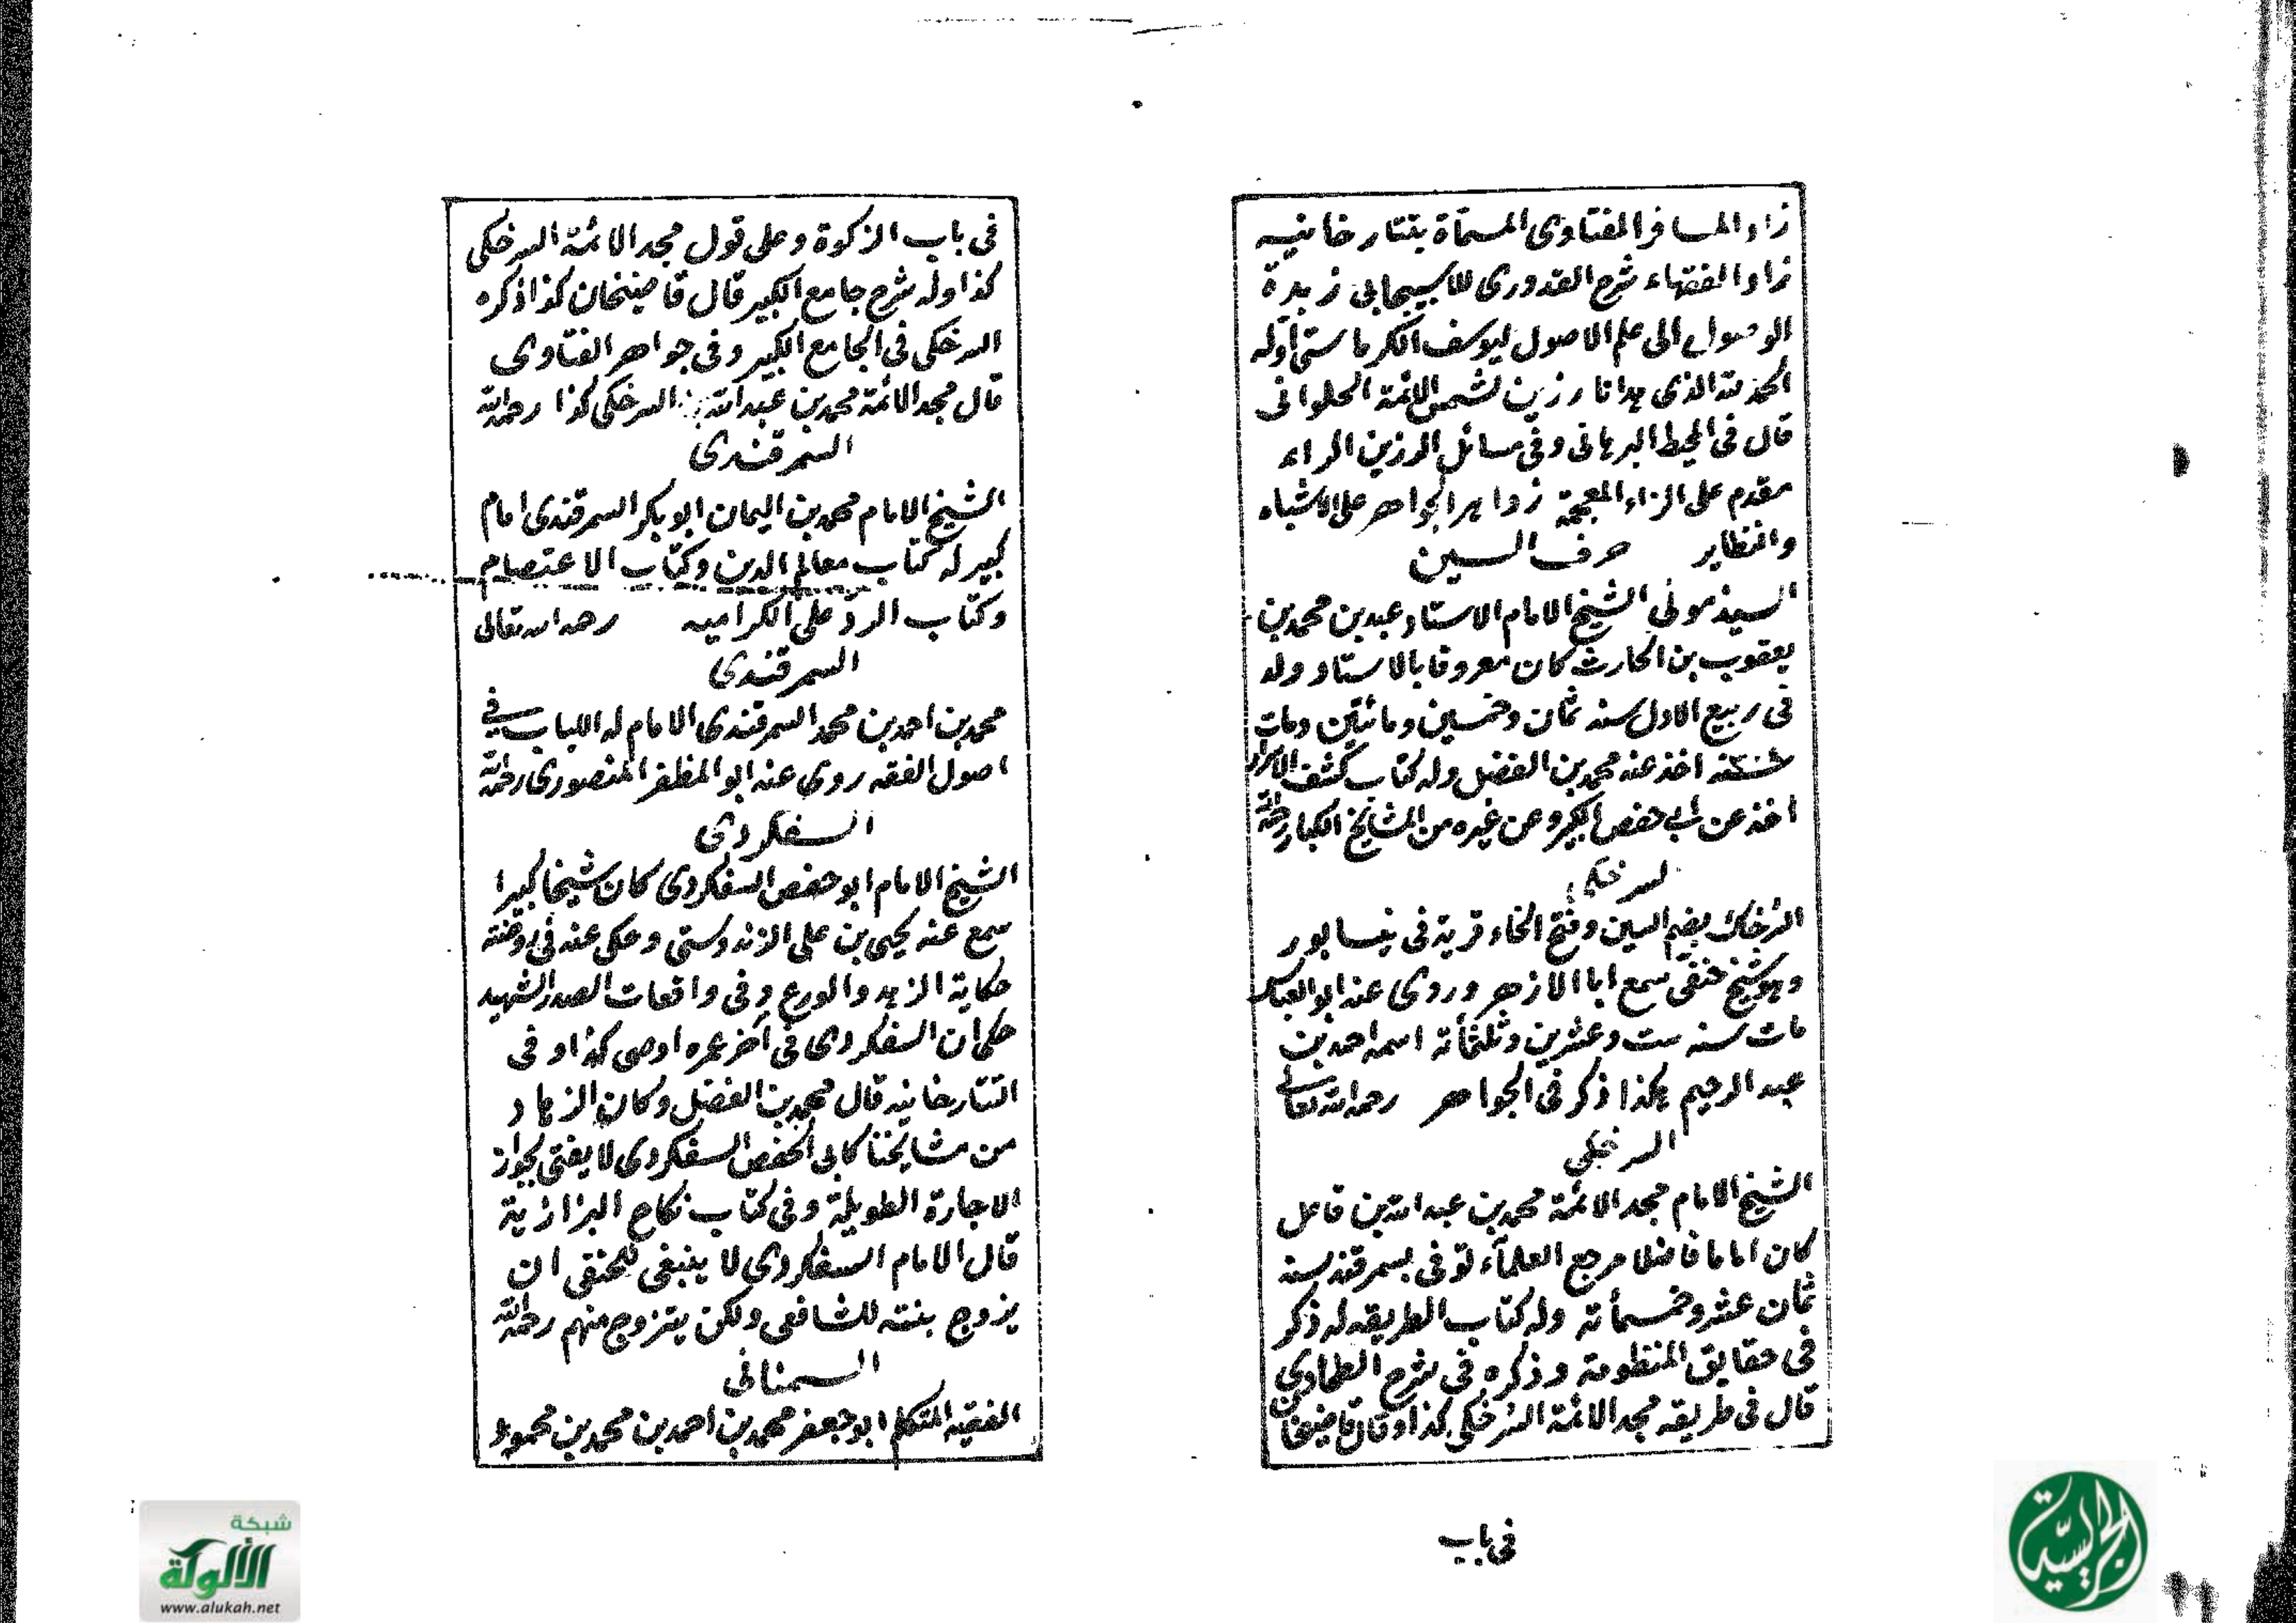 زاد المسافر الفتاوى المسماة بتتارخانيه
زاد الفقهاء شرح القدورى للاسبيجابى زبدة
الوصول الى علم الاصول ليوسف الكرماستى اوله
الحمد لله الذى هدانا رزين لشمس الائمة الحلوانى
قال فى المحيط البرهانى وفى مسائل الرزين الراء
مقدم على الزاء المعجمة زواهر الجواهر على الاشباه
والنظاير حرف السين
السيذمونى الشيخ الامام الاستاد عبد بن محمد بن
يعقوب بن الحارث كان معروفا بالاستاد ولد
فى ربيع الاول سنه ثمان وخمسين ومائتين ومات
اخذ عنه محمد بن الفضل وله كتاب كشف الاسرار
اخذ عن ابى حفص الكبير وعن غيره من المشايخ الكبار رحمه الله
السرخكى
السرخاك بضم السين وفتح الخاء قرية فى نيسابور
وهو شيخ حنفى سمع ابا الازهر وروى عنه ابو العباس
مات سنه ست وعشرين وثلثمأته اسمه احمد بن
عبد الرحيم هكذا ذكر فى الجواهر رحمه الله تعالى
السرخكى
الشيخ الامام مجد الائمة محمد بن عبد الله بن فاعل
كان اماما فاضلا مرجع العلمآء توفى بسمرقند سنه
ثمان عشر وخمسمأته وله كتاب الطريقه له ذكر
فى حقايق المنظومة وذكره فى شرح الطحاوى
قال فى طريقه مجد الائمة السرخكى كذا وقال قاضيخان
فى باب
فى باب الزكوة وعلى قول مجد الائمة السرخكى
كذا وله شرح جامع الكبير قال قاضيخان كذا ذكره
السرخكى فى الجامع الكبير وفى جواهر الفتاوى
قال مجد الائمة محمد بن عبد الله السرخكى كذا رحمه الله
السمرقندى
الشيخ الامام محمد بن اليمان ابو بكر السمرقندى امام
كبير له كتاب معالم الدين وكتاب الاعتصام
وكتاب الرد على الكراميه رحمه الله تعالى
السمرقندى
محمد بن احمد بن محمد السمرقندى الامام له اللباب فى
اصول الفقه روى عنه ابو المظفر المنصورى رحمه الله
السفكردى
الشيخ الامام ابو حفص السفكردى كان شيخا كبيرا
سمع عنه يحيى بن على الزندوستى وحكى عنه فى روضته
حكاية الزهد والورع وفى واقعات الصدر الشهيد
حكى ان السفكردى فى آخر عمره اوصى كذا وفى
التتارخانيه قال محمد بن الفضل وكان الزهاد
من مشايخنا كابى الحفص السفكردى لا يفتى بجواز
الاجارة الطويلة وفى كتاب نكاح البزازية
قال الامام السفكردى لا ينبغى للحنفى ان
يزوج بنته للشافعى ولكن يتزوج منهم رحمه الله
السمنانى
الفقيه المتكلم ابو جعفر محمد بن احمد بن محمد بن محمود
شبكة
الألوكة
www.alukah.net